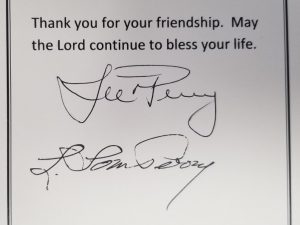 Thank you for your friendship. May
the Lord continue to bless your life.
Lee Perry
L. Tom Perry